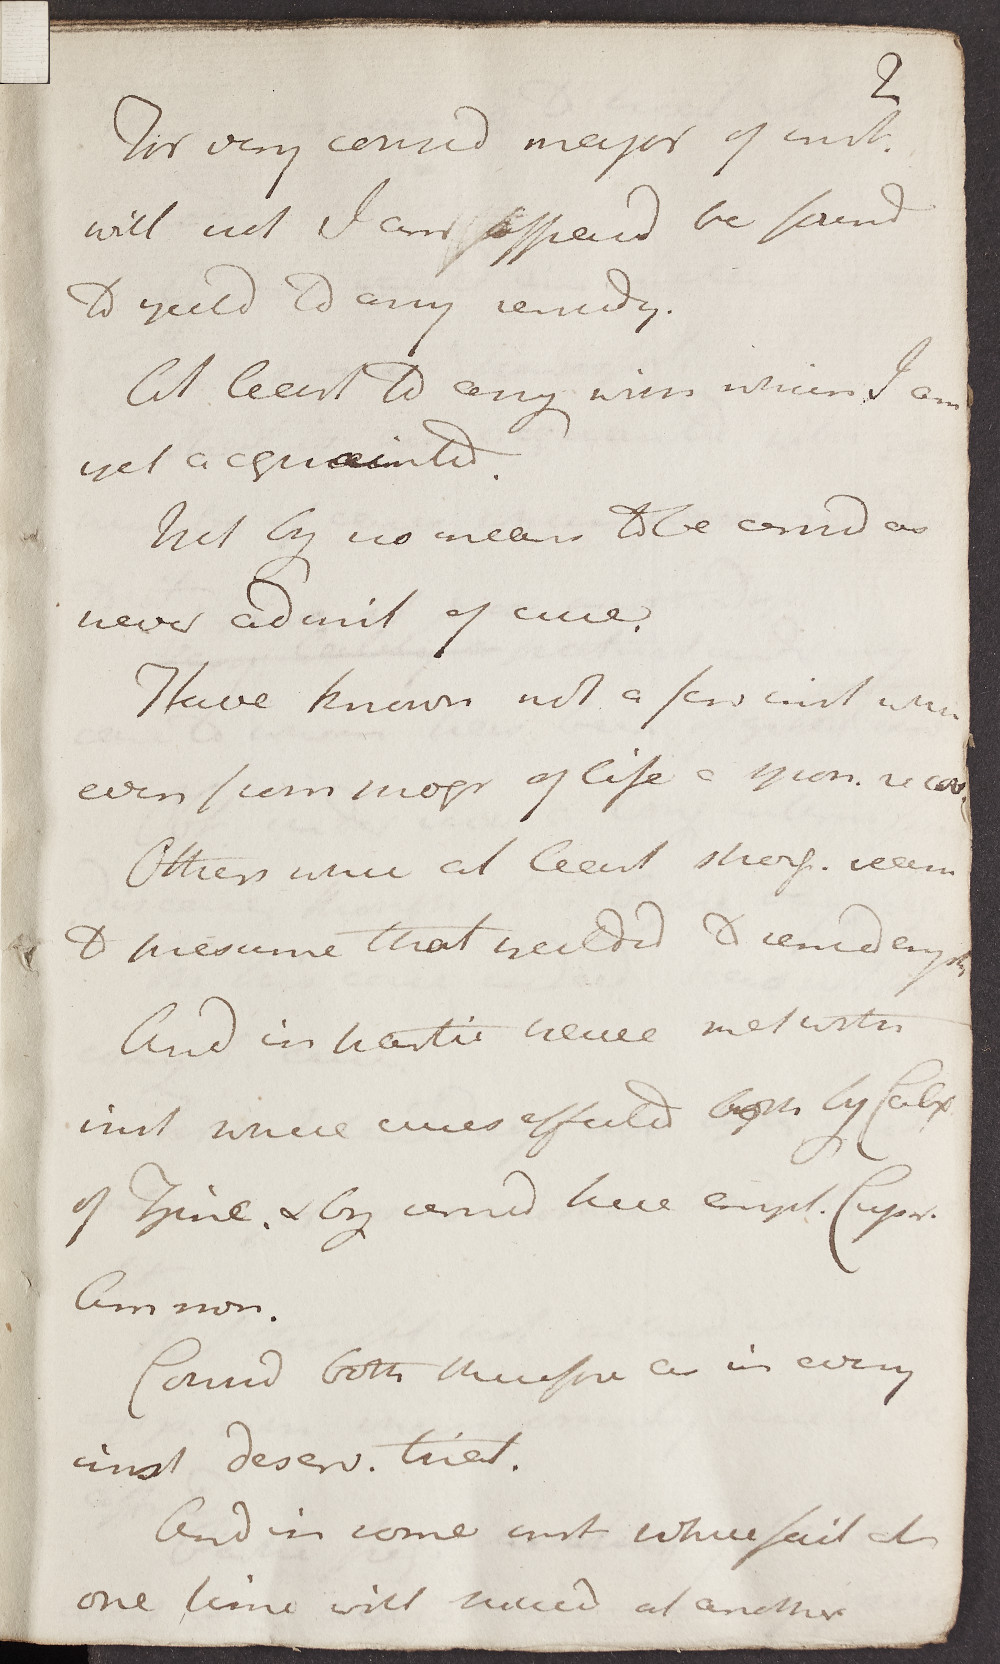 2
For very consid major of inst.
will not I am affraid be found
to yield to any remedy.
At least to any with which I am
yet acquainted.
Yet by no means to be consid as
never admit of cure.
Have known not a few inst where
even from progr of life a spon. recov.
Others where at least strong. reason
to presume that yielded to remed empl
And in partic have met with
inst where cures effected both by Calx
of Zinc. & by remed here empl. Cupr.
Ammon.
Consid both therefore as in every
inst deserv. trial.
And in some inst where fail at
one time will succeed at another